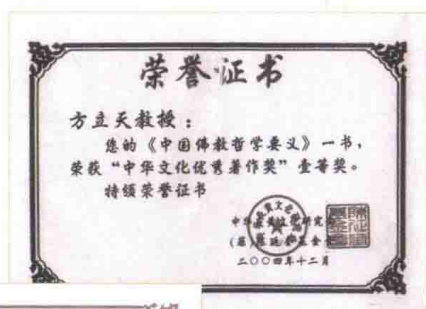 荣誉证书
方立天教授：
您的《中国佛教哲学要义》一书，
荣获“中华文化优秀著作奖”壹等奖。
特颁荣誉证书
中华
研究会
基金会
二〇〇四年十二月